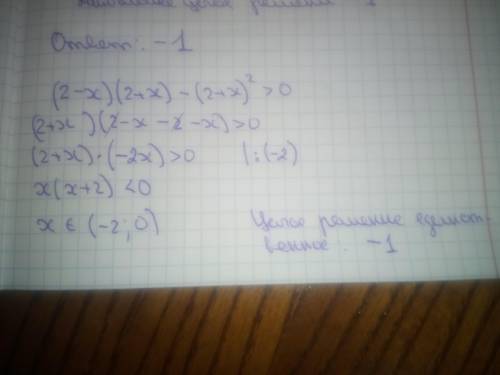 наибольшее целое решение -1
Ответ: -1
(2-x)(2+x) - (2+x)² > 0
(2+x)(2-x-2-x) > 0
(2+x)·(-2x) > 0 | :(-2)
x(x+2) < 0
x ∈ (-2; 0)
Целое решение единст-
венное: -1